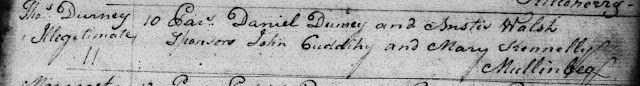 Thos Durney 10 Pars. Daniel Durney and Anstis Walsh
Illegitimate Sponsors John Cuddihy and Mary Kennelly
11 Mullinbeg